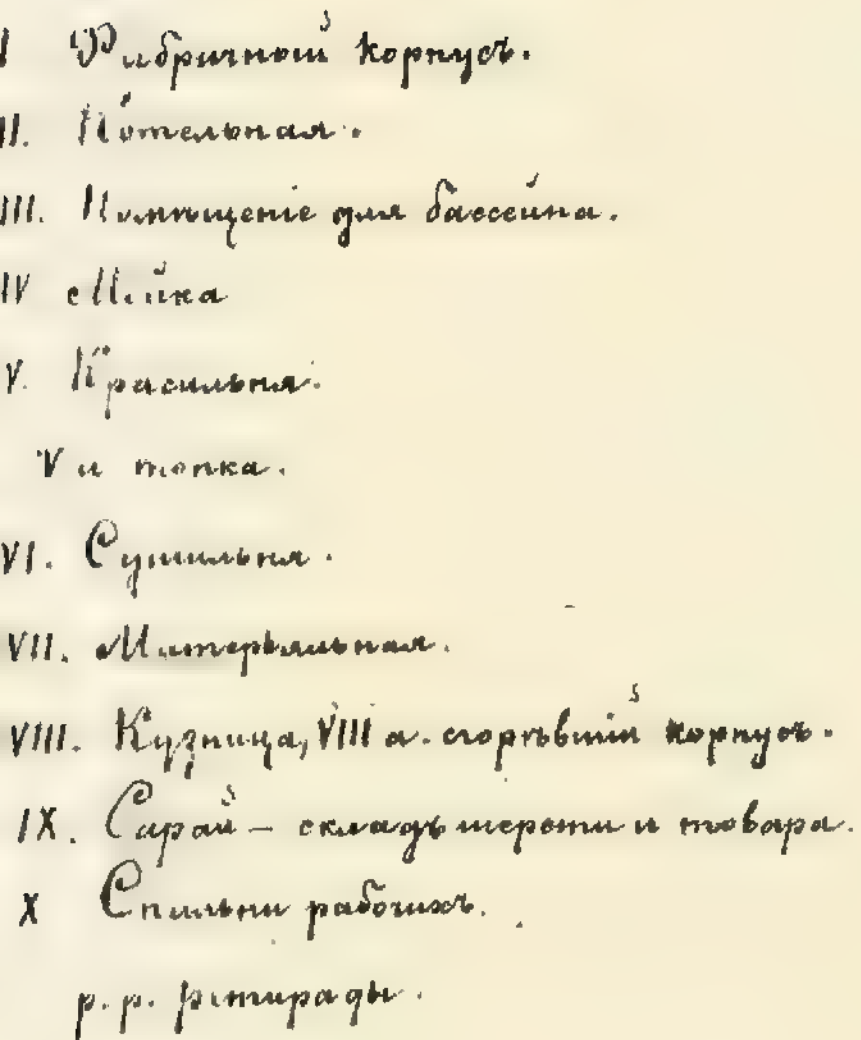 I Фабричной корпусъ.
II. Котельная.
III. Помѣщеніе для бассейна.
IV Мойка
V. Красильня.
V и топка.
VI. Сушильня.
VII. Матерьяльная.
VIII. Кузница, VIII а. сгорѣвшій корпусъ.
IX. Сарай – складъ шерсти и товара.
X Спальни рабочихъ.
р. р. ретирады.